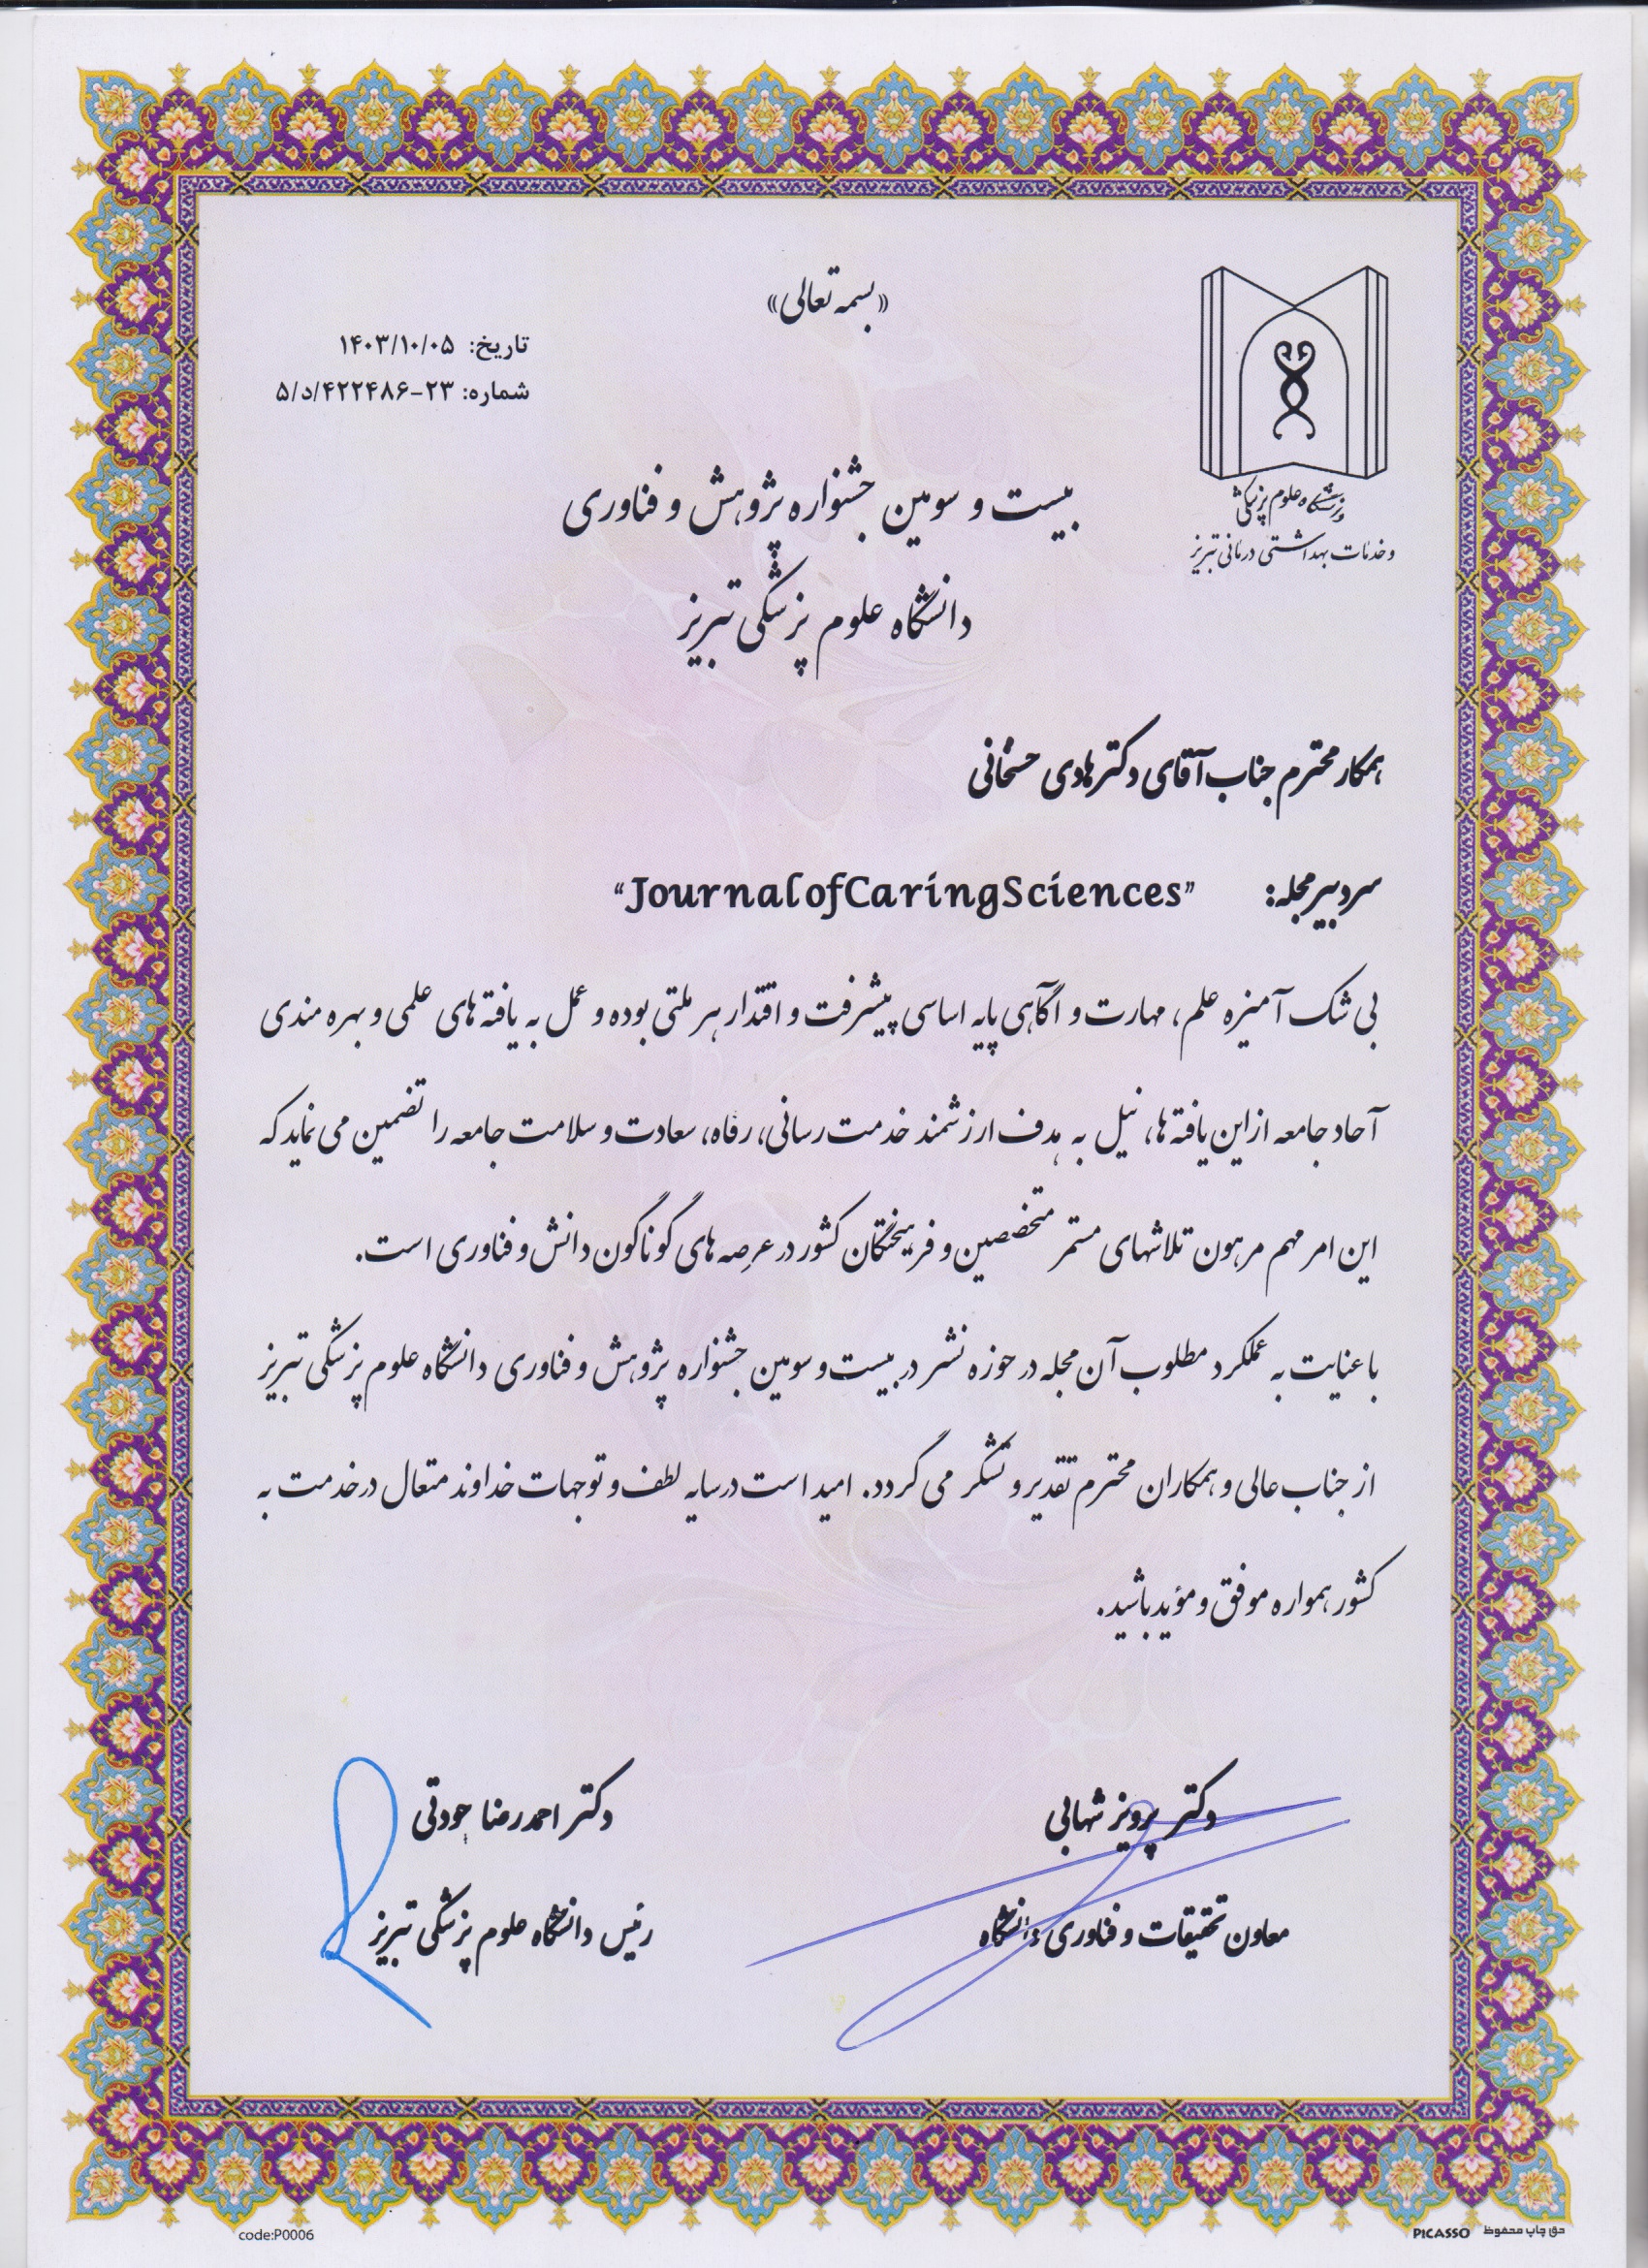 «بسمه تعالی»
تاریخ: ۱۴۰۳/۱۰/۰۵
شماره: ۵/د/۴۲۲۴۸۶-۲۳
دانشگاه علوم پزشکی
و خدمات بهداشتی درمانی تبریز
بیست و سومین جشنواره پژوهش و فناوری
دانشگاه علوم پزشکی تبریز
همکار محترم جناب آقای دکتر هادی حسنخانی
سردبیر مجله: "JournalofCaringSciences"
بی شک آمیزه علم، مهارت و آگاهی پایه اساسی پیشرفت و اقتدار هر ملتی بوده و عمل به یافته های علمی و بهره مندی
آحاد جامعه از این یافته ها، نیل به هدف ارزشمند خدمت رسانی، رفاه، سعادت و سلامت جامعه را تضمین می نماید که
این امر مهم مرهون تلاشهای مستمر متخصصین و فرهیختگان کشور در عرصه های گوناگون دانش و فناوری است.
با عنایت به عملکرد مطلوب آن مجله در حوزه نشر در بیست و سومین جشنواره پژوهش و فناوری دانشگاه علوم پزشکی تبریز
از جناب عالی و همکاران محترم تقدیر و تشکر می گردد. امید است در سایه لطف و توجهات خداوند متعال در خدمت به
کشور همواره موفق و مؤید باشید.
دکتر پرویز شهابی
معاون تحقیقات و فناوری دانشگاه
دکتر احمدرضا جودتی
رئیس دانشگاه علوم پزشکی تبریز
code:P0006
PICASSO حق چاپ محفوظ